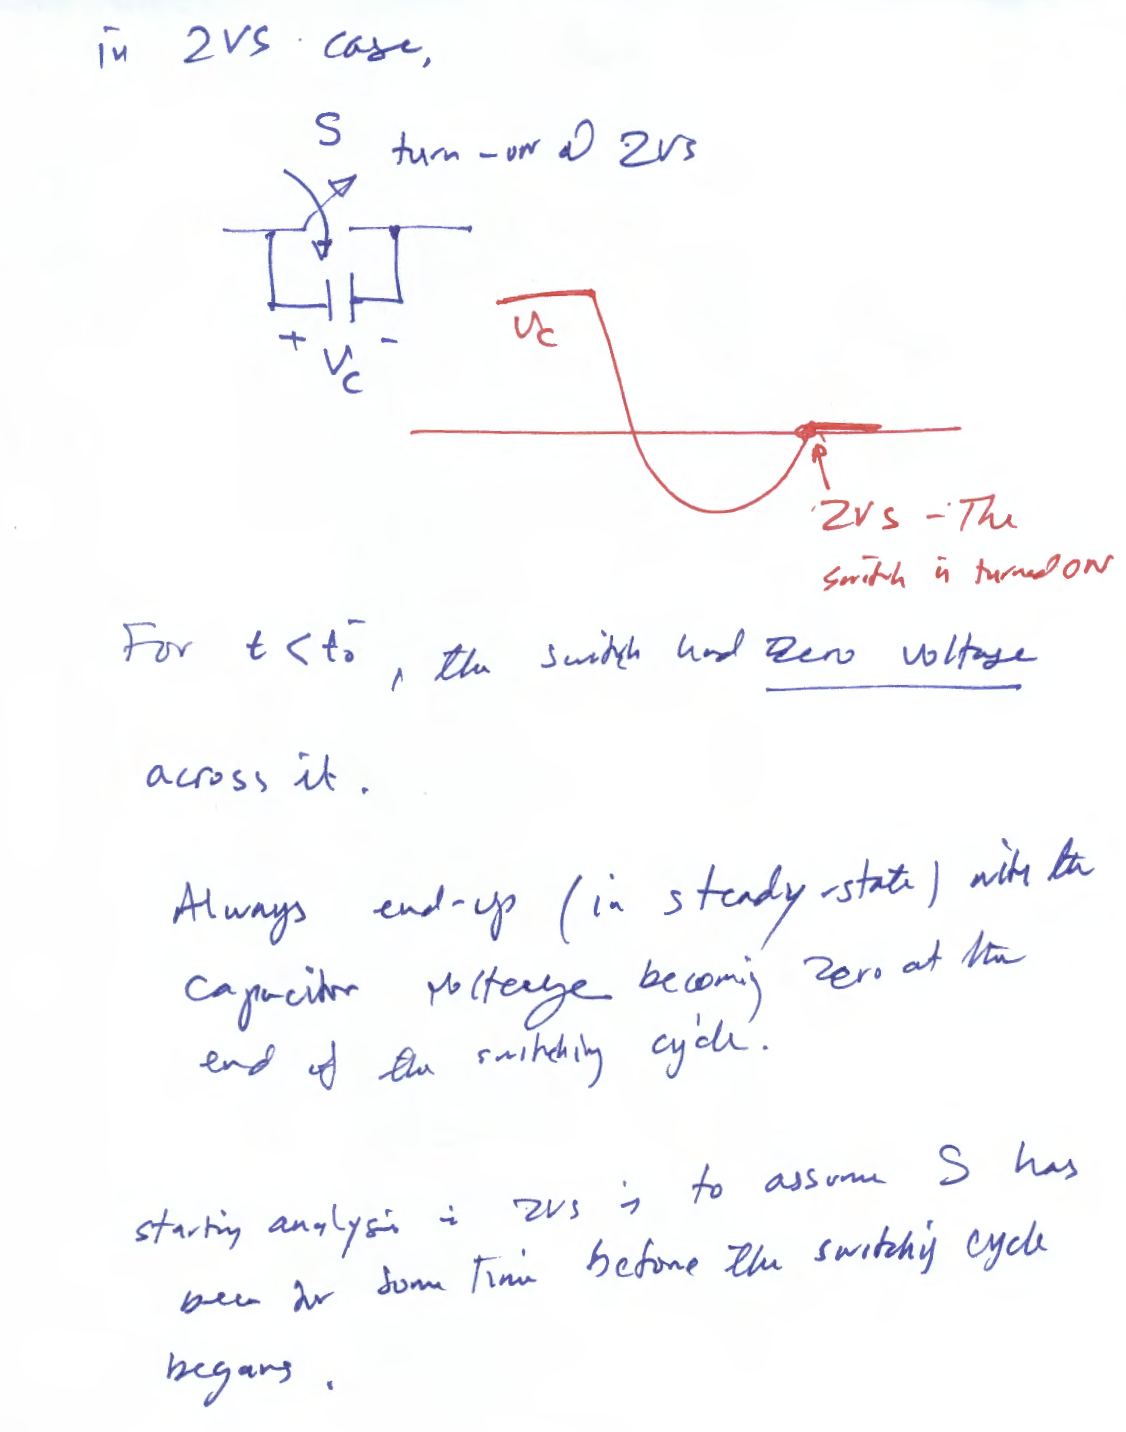 in ZVS case,
S
turn-on @ ZVS
+ Vc -
Vc
ZVS - The
switch is turned ON
For t < to⁻, the switch had zero voltage
across it.
Always end-up (in steady-state) with the
capacitor voltage becoming zero at the
end of the switching cycle.
starting analysis in ZVS is to assume S has
been for some time before the switching cycle
begans.